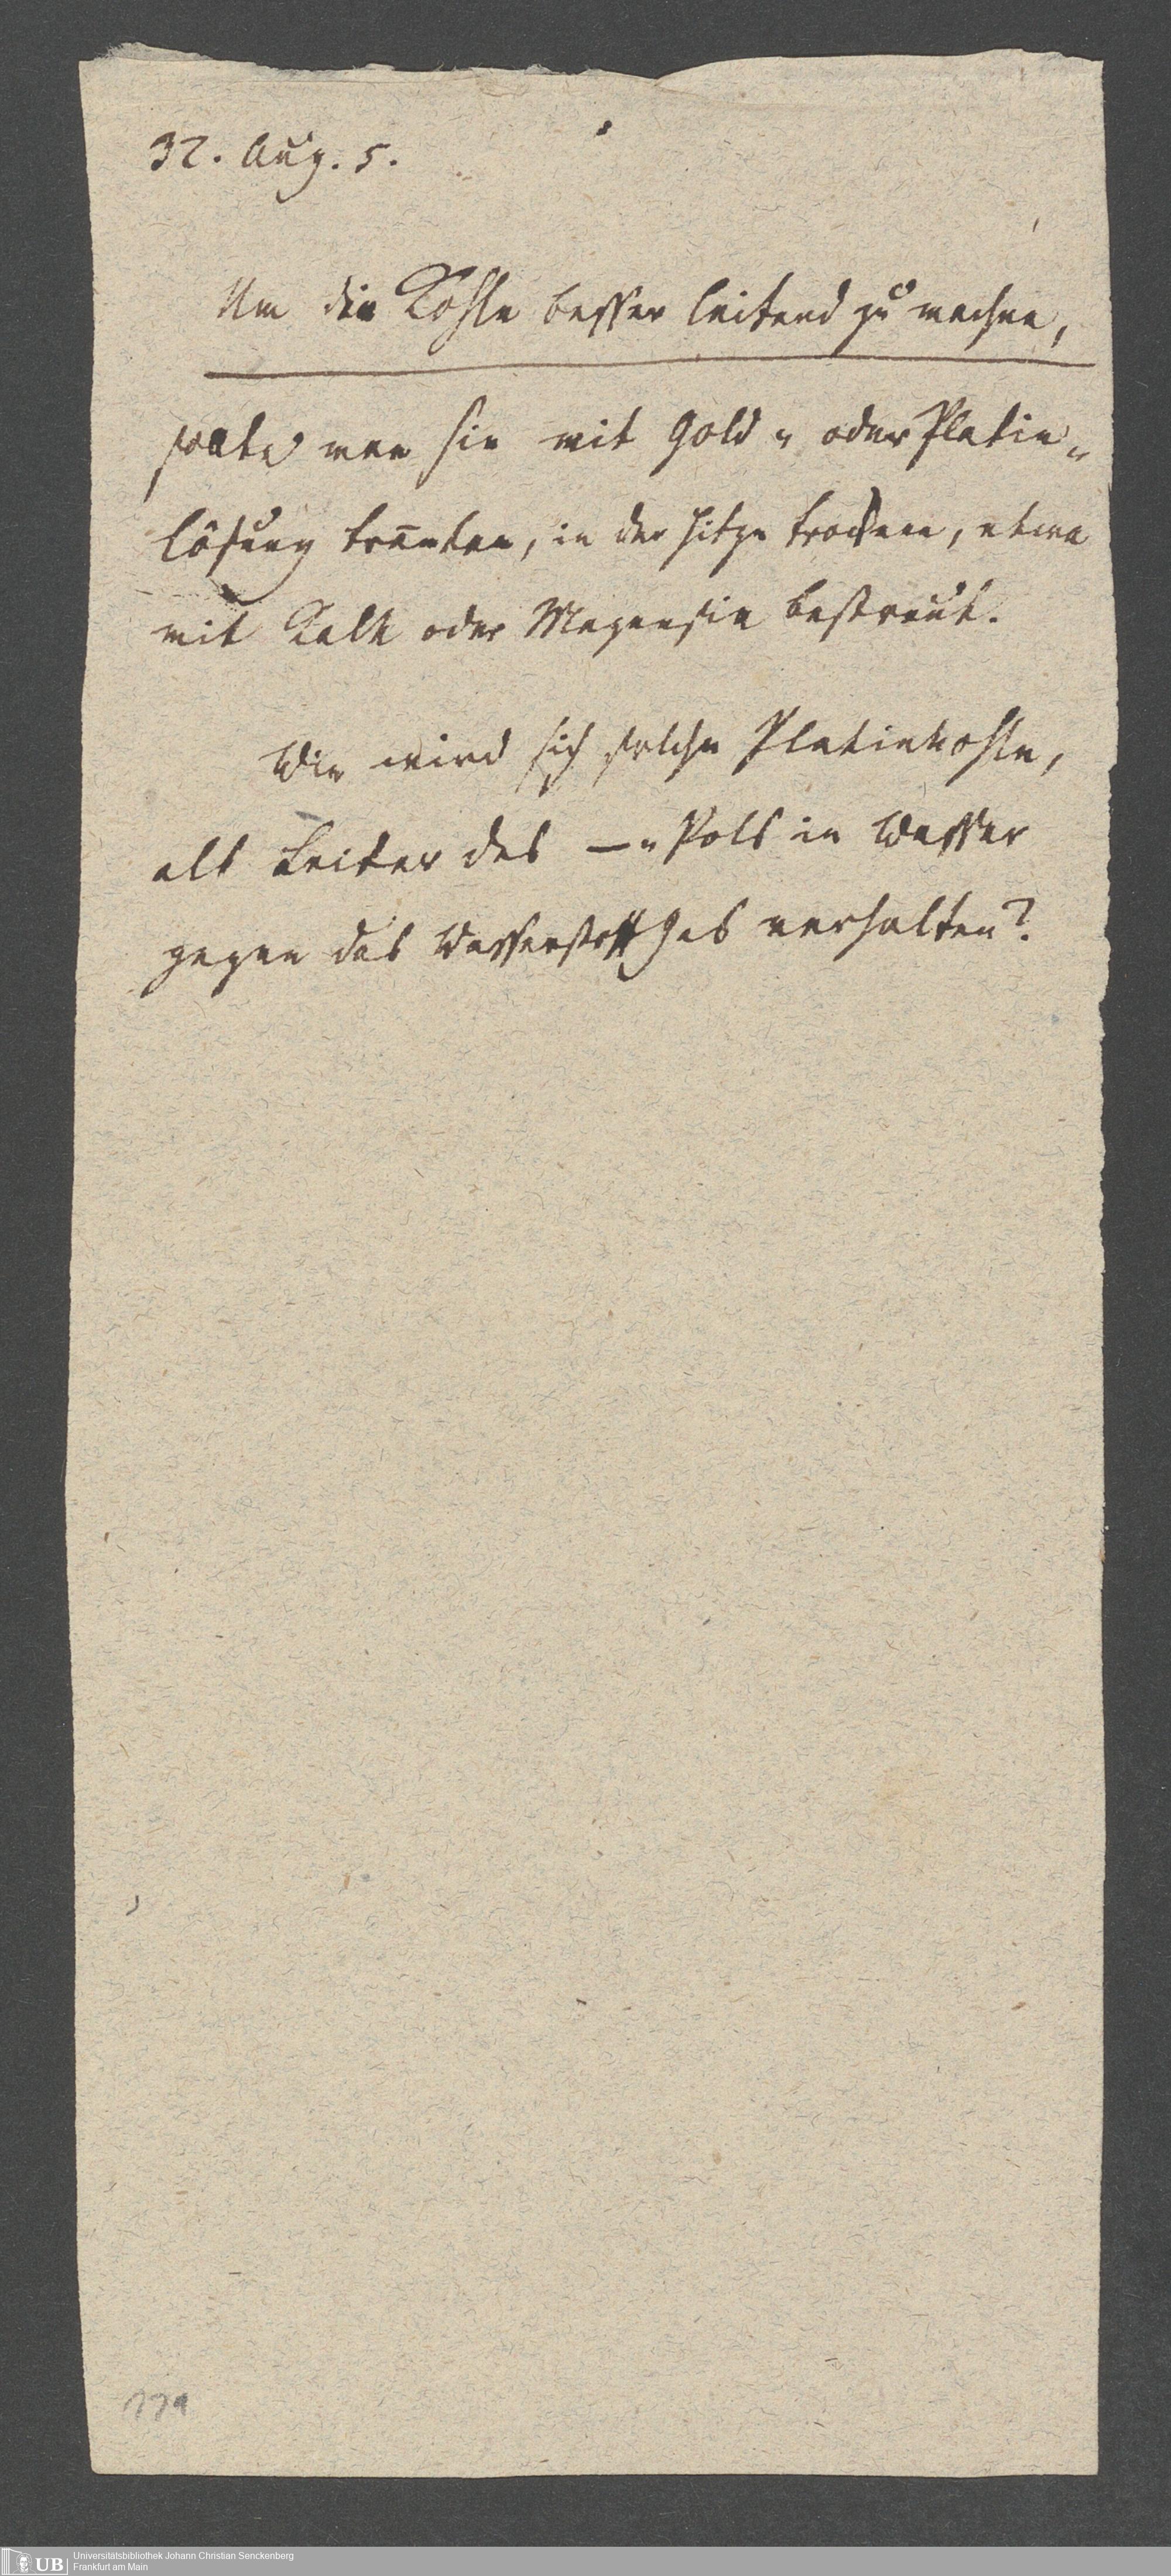 32. Aug. 5.
Um die Kohle besser leitend zu machen,
sollte man sie mit Gold- oder Platin-
lösung tränken, in der Hitze trocknen, etwa
mit Kalk oder Magnesia bestreut.
Wie wird sich solche Platinkohle,
als Leiter des —-Pols in Wasser
gegen das Wasserstoffgas verhalten?
Universitätsbibliothek Johann Christian Senckenberg
Frankfurt am Main
UB